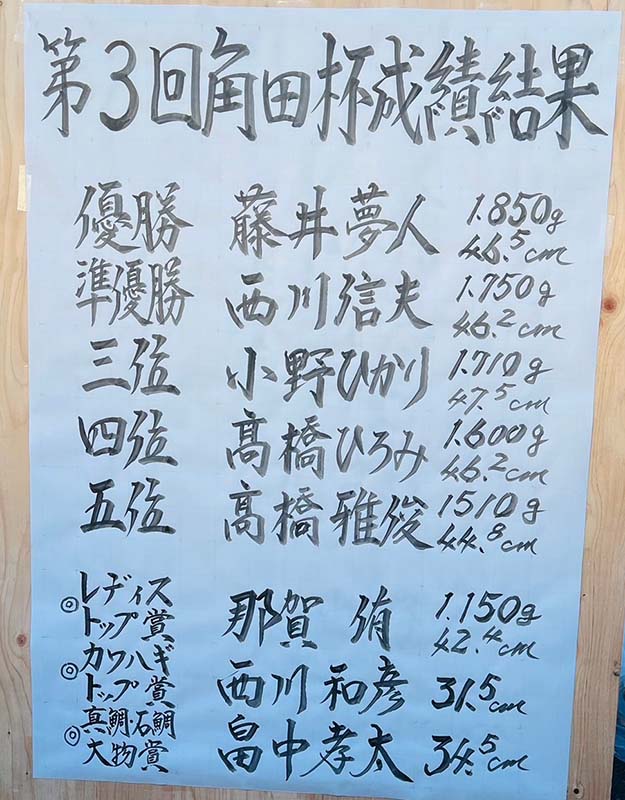 第3回角田杯成績結果
優勝 藤井夢人 1.850g 46.5cm
準優勝 西川信夫 1.750g 46.2cm
三位 小野ひかり 1.710g 47.5cm
四位 高橋ひろみ 1.600g 46.2cm
五位 高橋雅俊 1510g 44.8cm
◎レディストップ賞 那賀侑 1.150g 42.4cm
◎カワハギトップ賞 西川和彦 31.5cm
◎真鯛・石鯛大物賞 畠中孝太 34.5cm